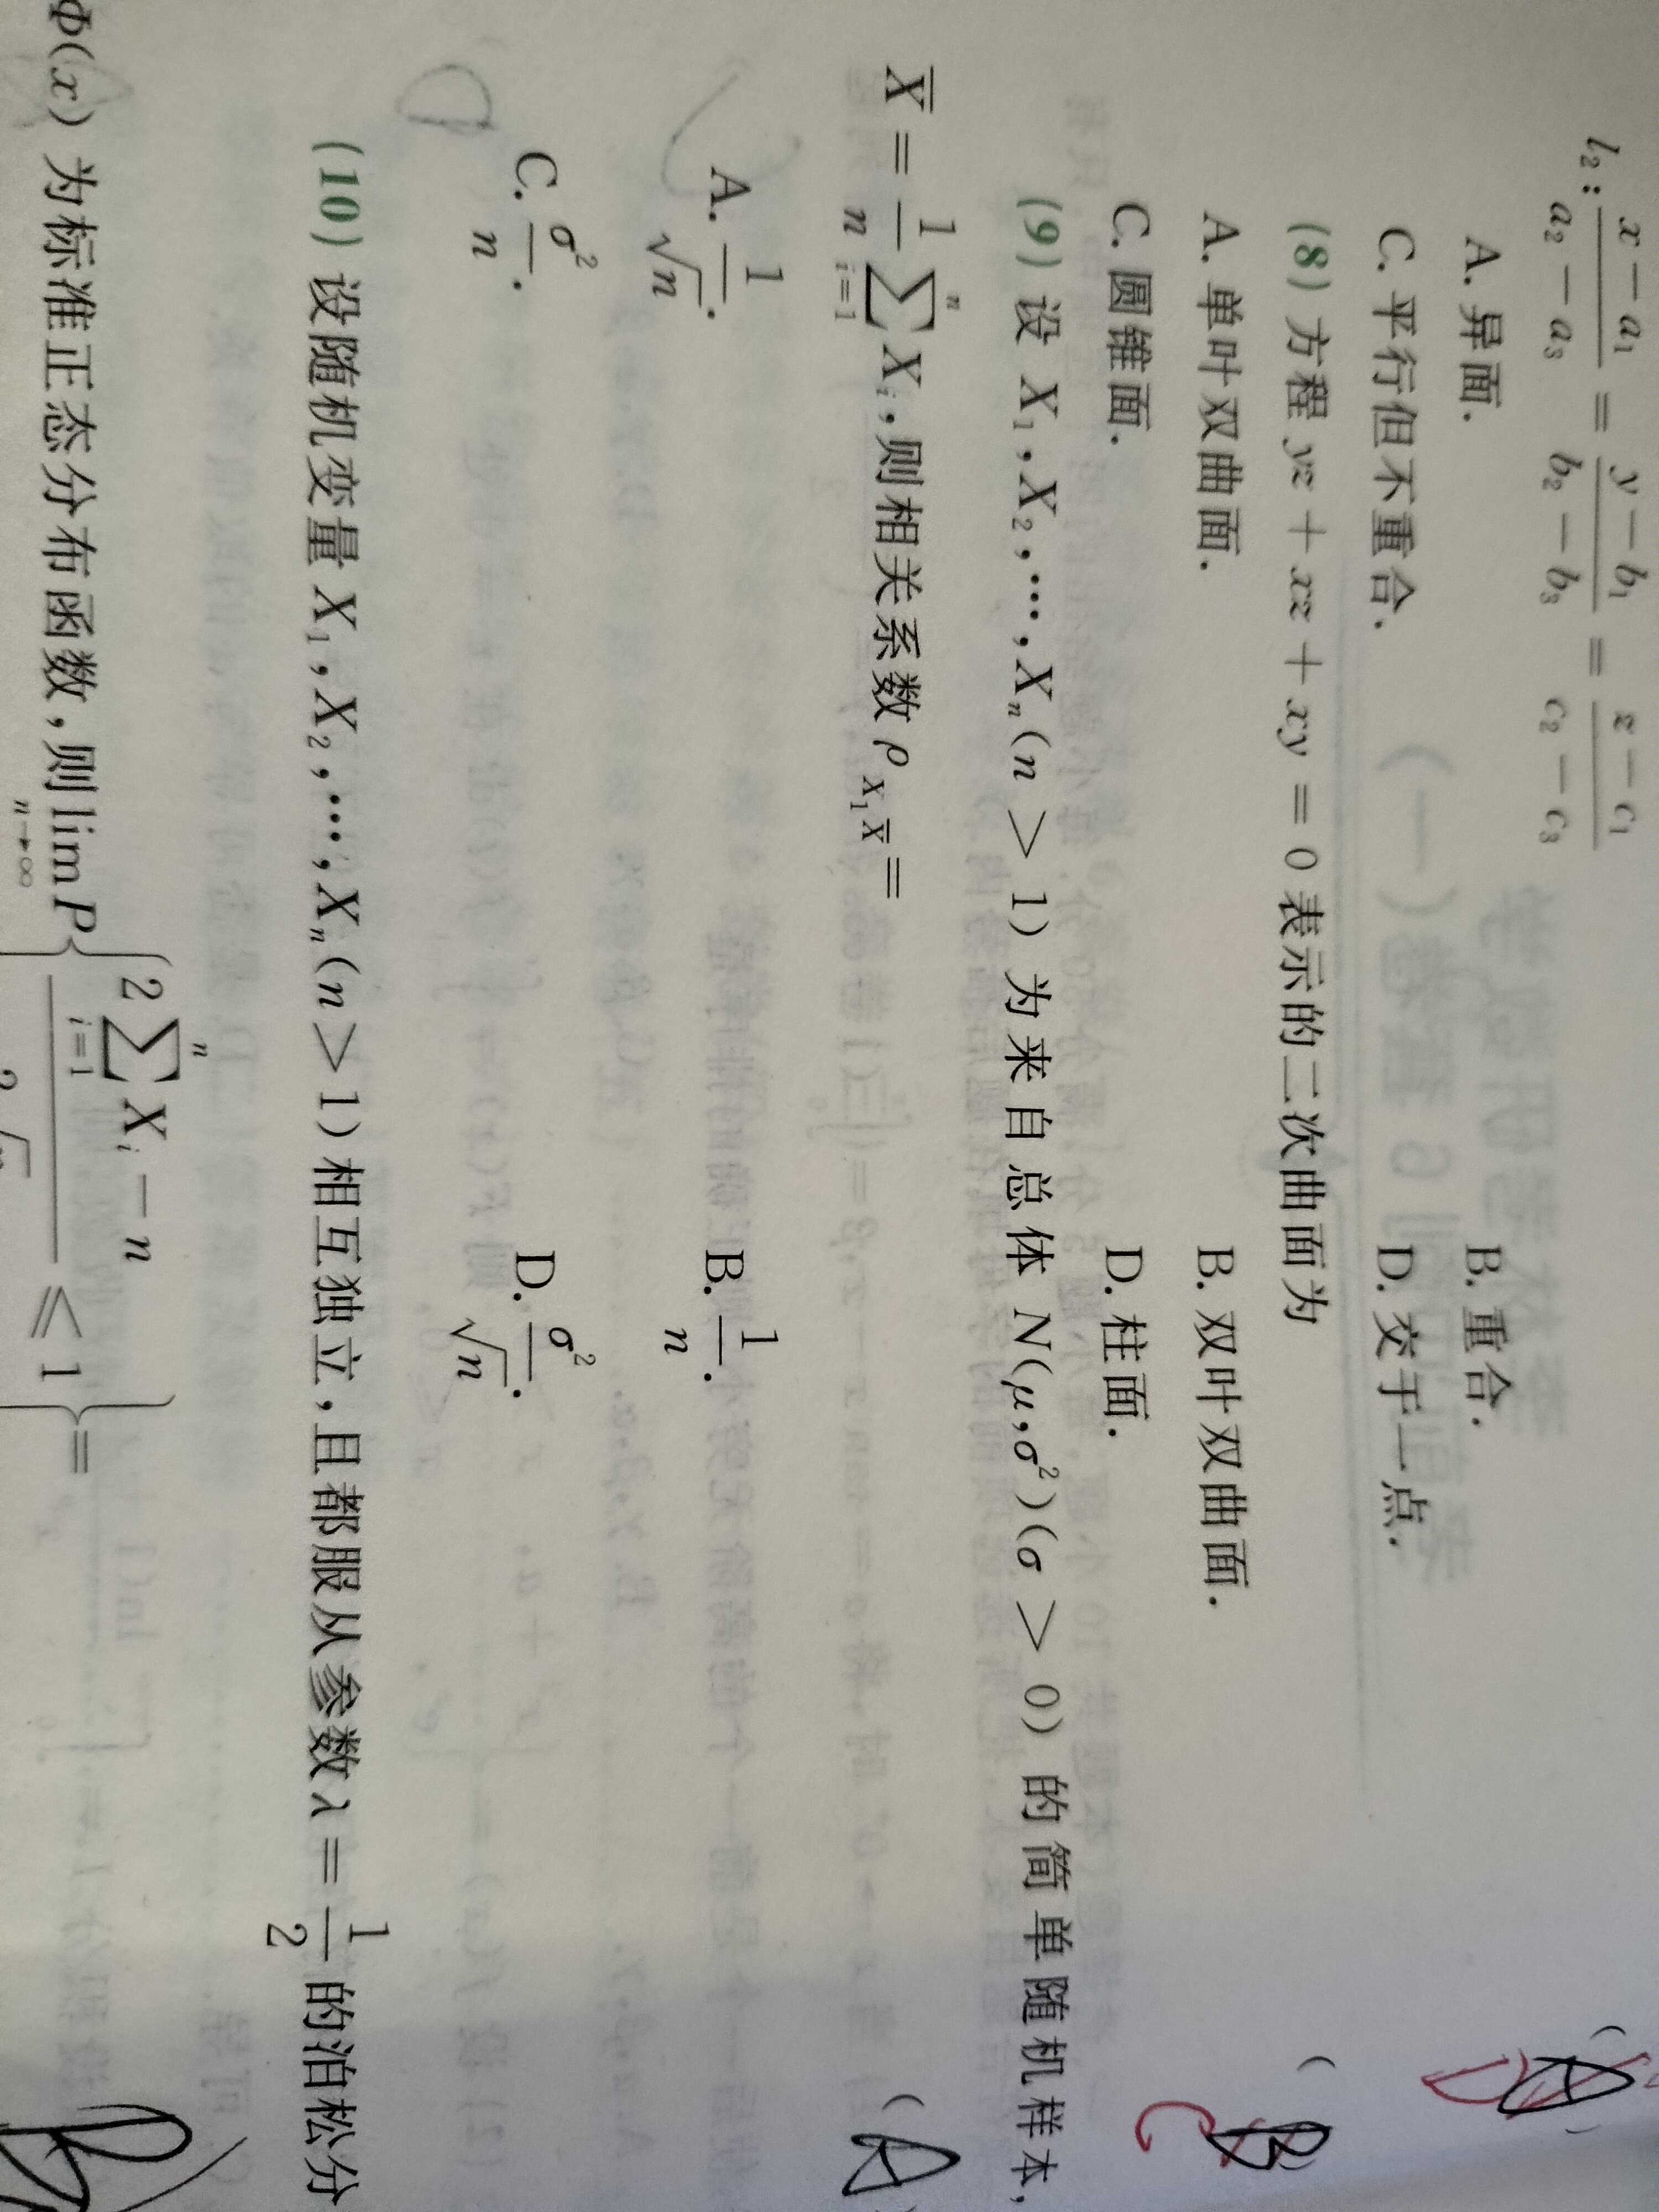 l₂: \frac{x-a₁}{a₂-a₃} = \frac{y-b₁}{b₂-b₃} = \frac{z-c₁}{c₂-c₃}
A. 异面. B. 重合.
C. 平行但不重合. D. 交于一点.
(8) 方程 yz + xz + xy = 0 表示的二次曲面为 (B)
A. 单叶双曲面. B. 双叶双曲面.
C. 圆锥面. D. 柱面.
(9) 设 X₁, X₂, …, Xₙ (n > 1) 为来自总体 N(μ, σ²)(σ > 0) 的简单随机样本,
\overline{X} = \frac{1}{n}\sum_{i=1}^{n} Xᵢ, 则相关系数 ρ_{X₁\overline{X}} = (A)
A. \frac{1}{\sqrt{n}}. B. \frac{1}{n}.
C. \frac{σ²}{n}. D. \frac{σ²}{\sqrt{n}}.
(10) 设随机变量 X₁, X₂, …, Xₙ (n > 1) 相互独立, 且都服从参数 λ = \frac{1}{2} 的泊松分
Φ(x) 为标准正态分布函数, 则 \lim_{n→∞} P{ 2\sum_{i=1}^{n} Xᵢ - n ≤ 1 } = B